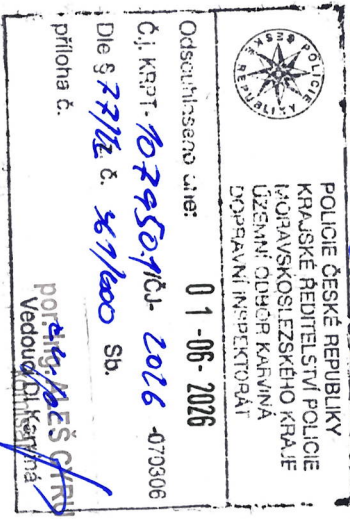 POLICIE ČESKÉ REPUBLIKY
KRAJSKÉ ŘEDITELSTVÍ POLICIE
MORAVSKOSLEZSKÉHO KRAJE
ÚZEMNÍ ODBOR KARVINÁ
DOPRAVNÍ INSPEKTORÁT
POLICIE ČESKÉ REPUBLIKY
Odsouhlaseno dne: 01-06-2026
Č.j. KRPT- /ČJ- 2026 -070306
Dle § 77/ č. 361/ Sb.
příloha č.
por. Ing. ALEŠ
Vedoucí DI Karviná